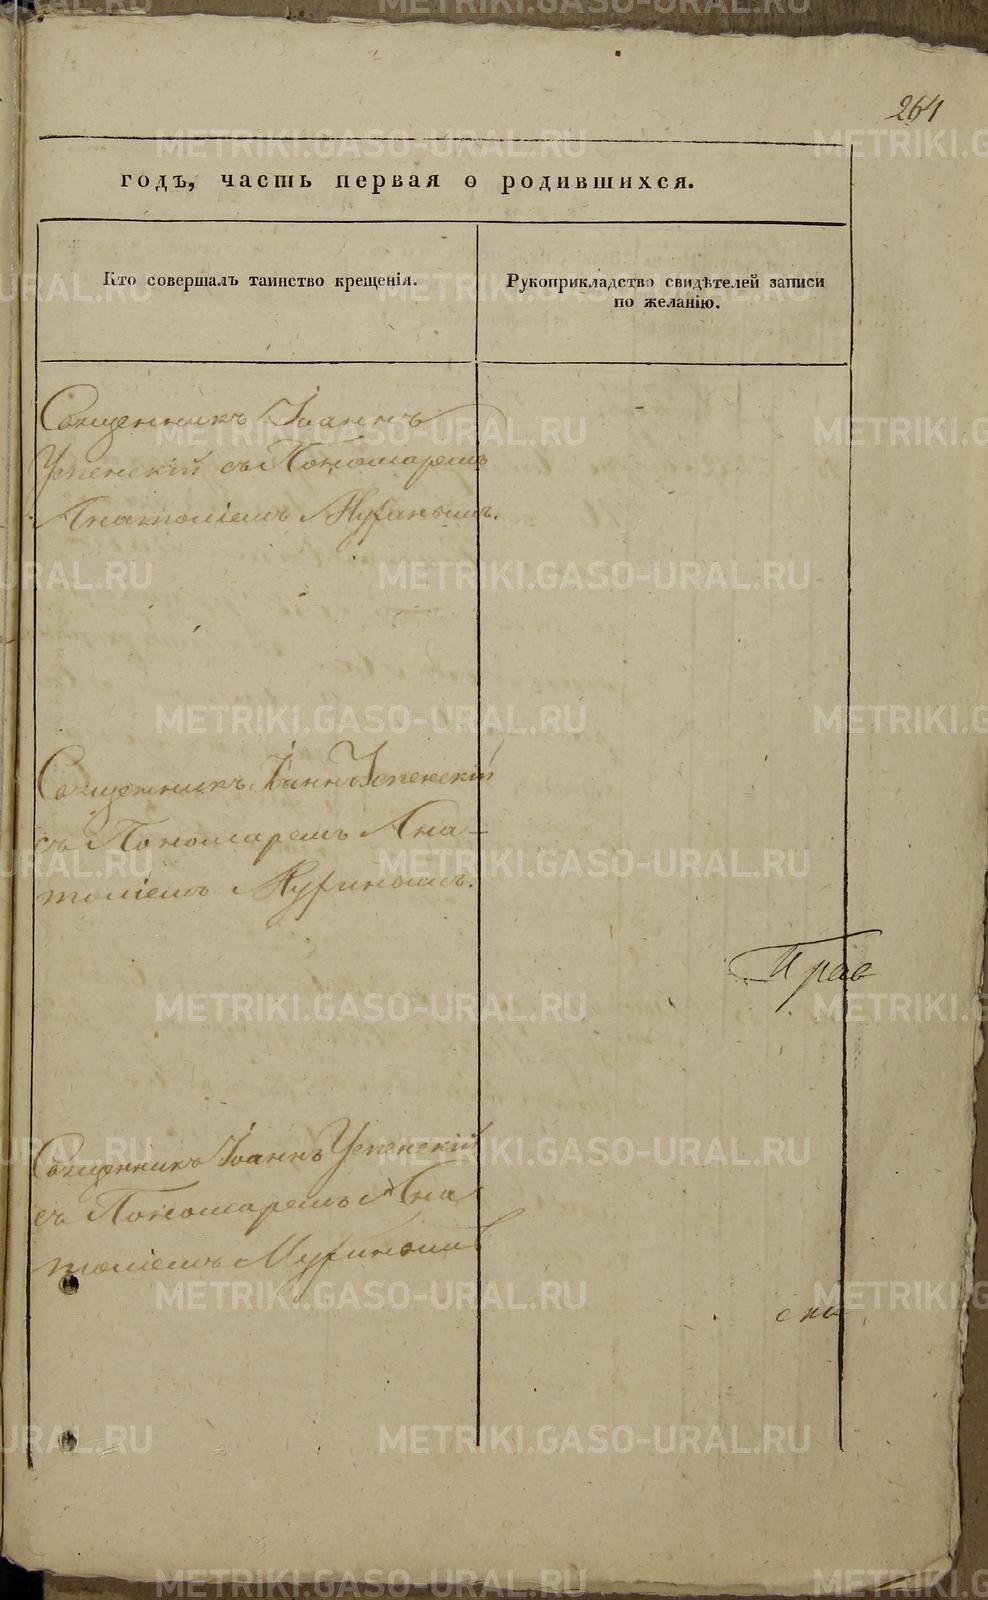 264
годъ, часть первая о родившихся.
Кто совершалъ таинство крещенія.
Рукоприкладство свидѣтелей записи
по желанію.
Священникъ Іоаннъ
Успенскій съ Пономаремъ
Анатоліемъ Мухинымъ.
Священникъ Іоаннъ Успенскій
съ Пономаремъ Ана-
толіемъ
Прав
Священникъ Іоаннъ Успенскій
съ Пономаремъ Ана
толіемъ
METRIKI.GASO-URAL.RU